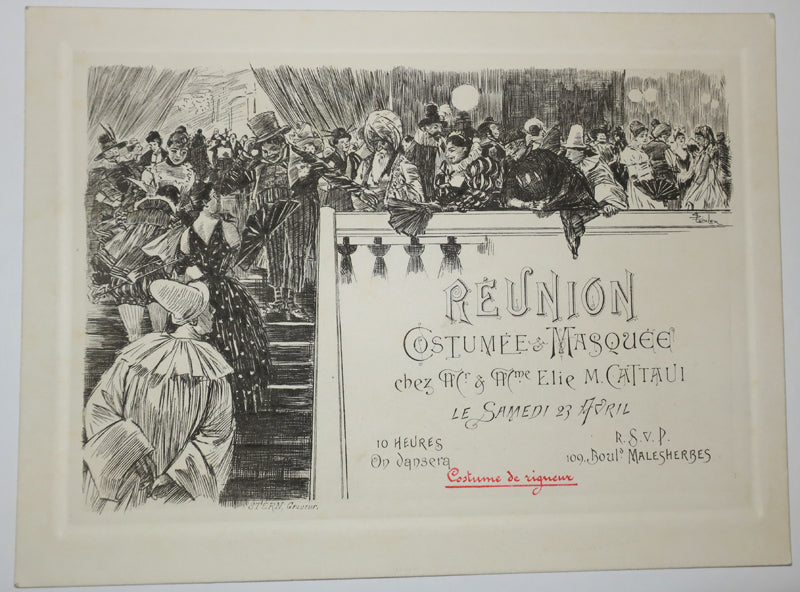 RÉUNION
COSTUMÉE & MASQUÉE
chez Mr & Mme Elie M. CATTAUI
LE SAMEDI 23 AVRIL
10 HEURES
On dansera
R. S. V. P.
109, Boulď MALESHERBES
Costume de rigueur
STERN, Graveur.